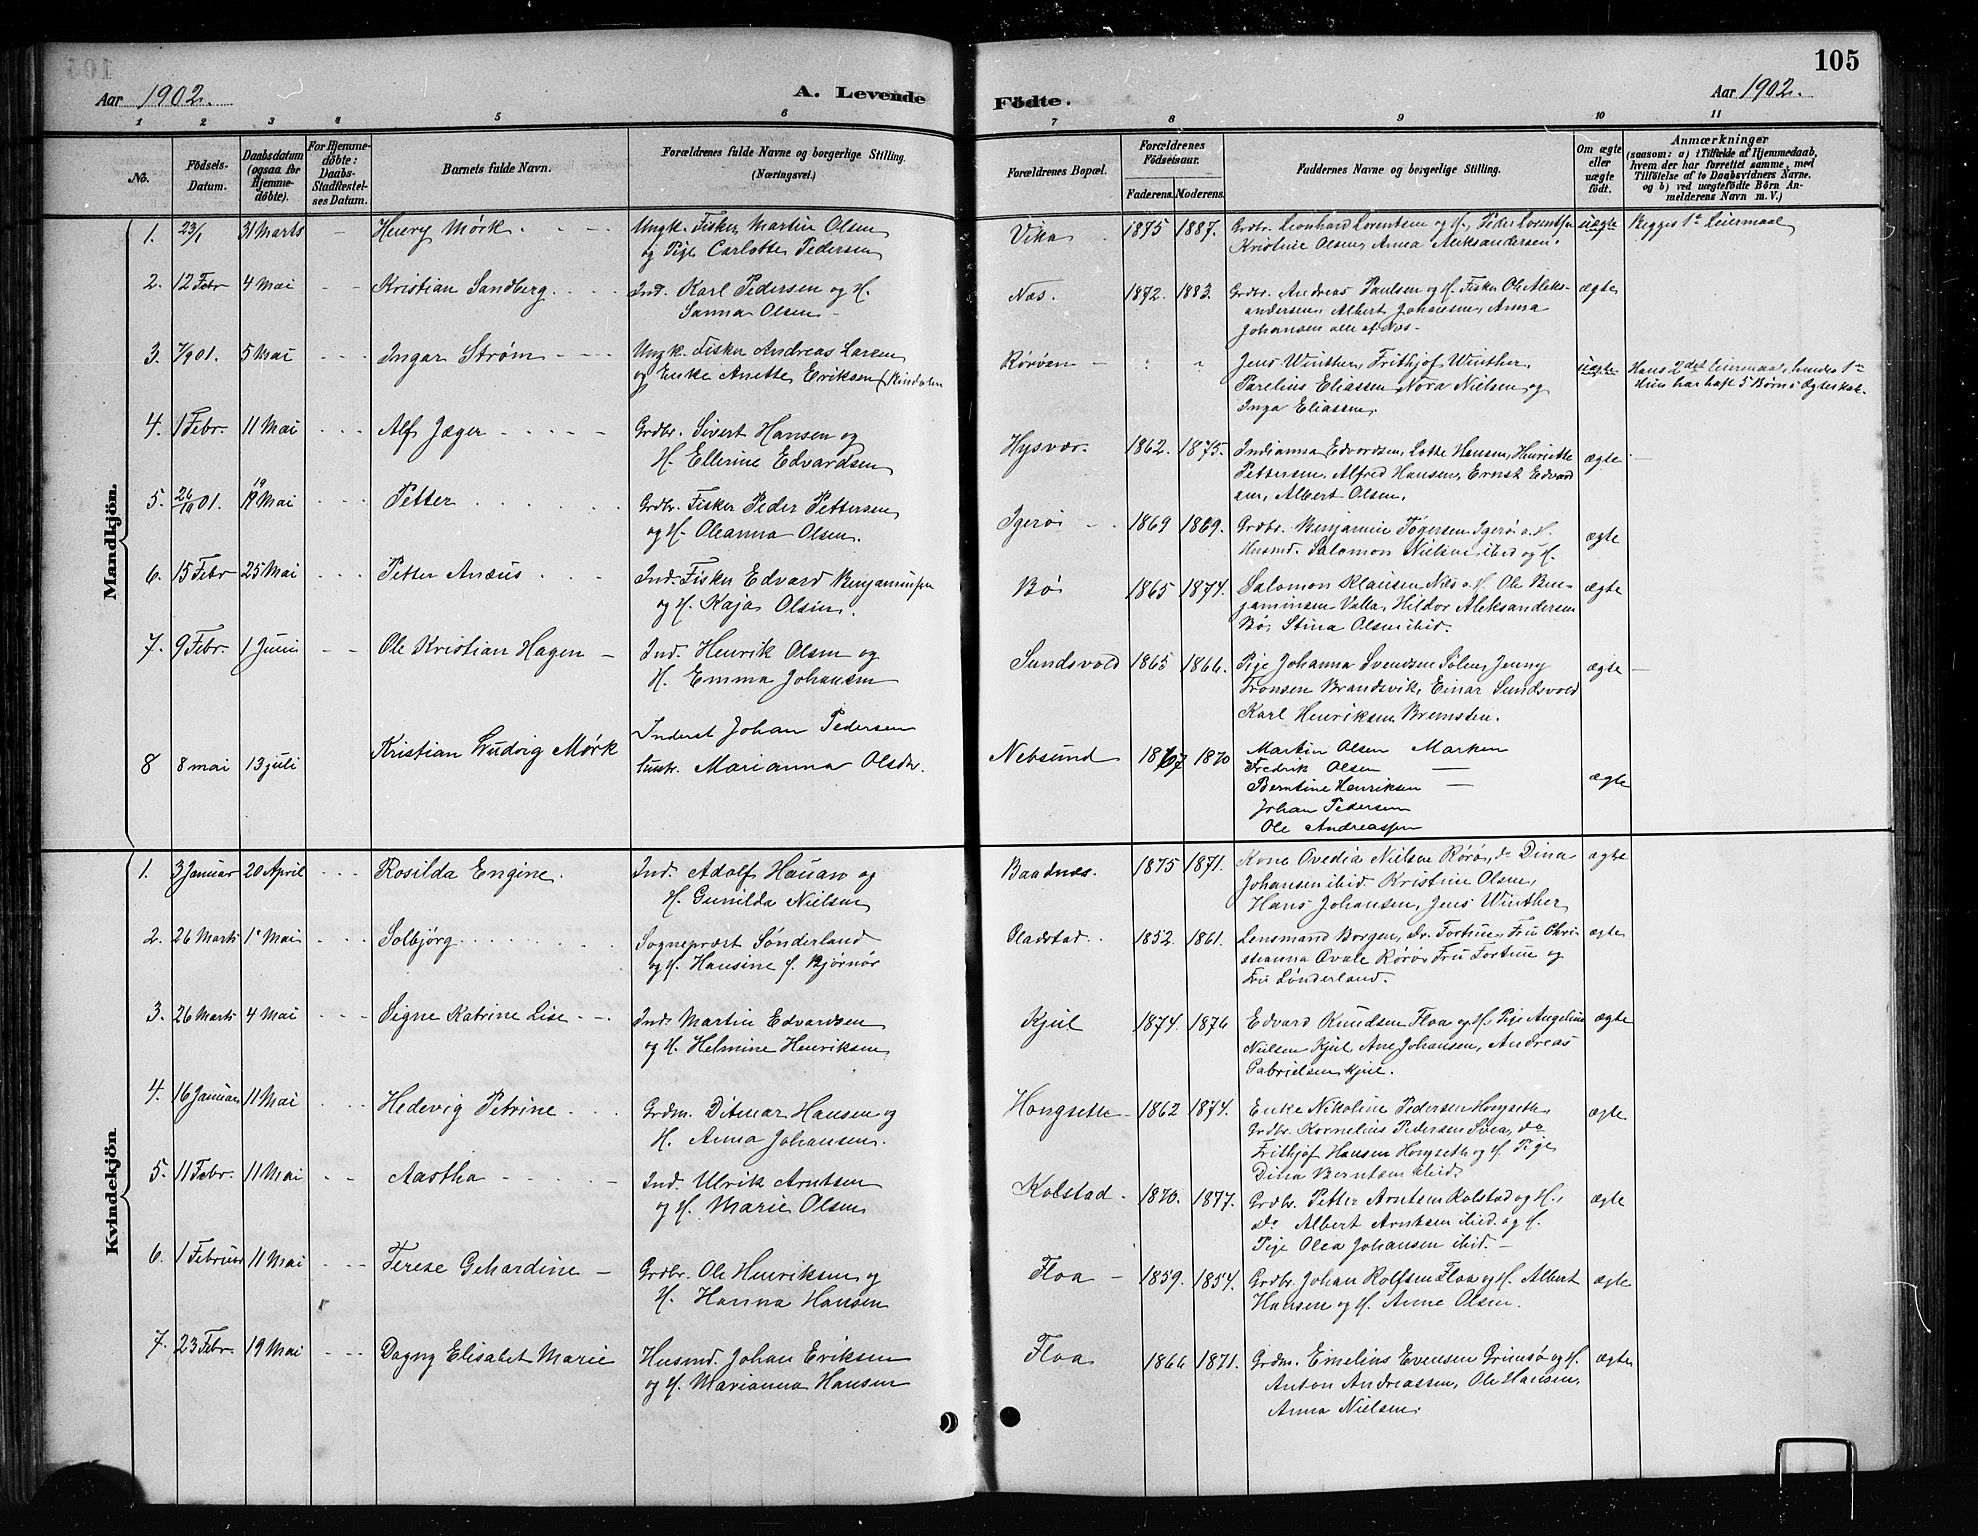 105
Aar 1902.
A. Levende Födte.
Aar 1902.
1 2 3 4 5 6 7 8 9 10 11
No.
Födsels-Datum.
Daabsdatum (ogsaa for Hjemmedöbte).
For Hjemmedøbte: Daabs-Stadfestelses Datum.
Barnets fulde Navn.
Forældrenes fulde Navne og borgerlige Stilling.
(Næringsvei.)
Forældrenes Bopæl.
Forældrenes Födselsaar.
Faderens. Moderens.
Faddernes Navne og borgerlige Stilling.
Om ægte eller uægte födt.
Anmærkninger
(saasom: a) i Tilfælde af Hjemmedaab, hvem der har forrettet samme, med Tilföielse af to Daabsvidners Navne, og b) ved uægtefödte Börn Anmelderens Navn m. V.)
Mandkjön.
1. 23/1 31 Marts - Henry Mørk. Ungk. Fisker Martin Olsen
og Pige Carlotte Pedersen
Vika 1875 1887. Grdbr. Leonhard Lorentsen og H., Peder Lorentsen
Kristine Olsen, Anna Aleksandersen.
uægte Begges 1ste Leiermaal
2. 12 Febr 4 Mai - - Kristian Sandberg. Ind. Karl Pedersen og H.
Sanna Olsen -
Næs. 1872. 1883. Grdbr. Andreas Paulsen og H. Fisker Ole Aleks-
andersen, Albert Johansen, Anna
Johansen alle af Næs.
ægte
3. 7/9 01. 5 Mai - - - Ingar Strøm Ungk. Fisker Andreas Larsen
og Enke Anette Eriksen
Rørøen - " " Jens Winther, Frithjof Winther,
Parelius Eliassen, Nora Nielsen og
Inga Eliassen.
uægte Hans 2det Leiermaal, hendes 1ste
Hun har havt 5 Børn i Ægteskab.
4. 1 Febr. 11 Mai - - - Alf Jæger Grdbr. Sivert Hansen og
H. Ellerine Edvardsen
Hysvær. 1862. 1875. Indianna Edvardsen, Lotte Hansen, Henriette
Pettersen, Alfred Hansen, Ernst Edvard
sen, Albert Olsen.
ægte -
5. 26/10 01. 19 Mai - - - Petter Grdbr. Fisker Peder Pettersen
og H. Oleanna Olsen.
Igerøi 1869 1869. Grdbr. Benjamin Togersen Igerø o. H.
Husmd. Salomon Nielsen ibid og H.
ægte
6. 15 Febr 25 Mai - - - Petter Anæus Ind. Fisker Edvard Benjaminsen
og H. Kaja Olsen.
Bø 1865 1874. Salomon Klausen Næs o. H. Ole Ben-
jaminsen Valla, Hildor Aleksandersen
Bø, Stina Olsen ibid.
ægte
7. 9 Febr. 1 Juni - - Ole Kristian Hagen - Ind. Henrik Olsen og
H. Emma Johansen
Sundsvold 1865 1866. Pige Johanna Svendsen Sølen, Jenny
Fronsen Brandsvik, Einar Sundsvold
Karl Henriksen Bremsten.
ægte -
8 8 mai 13 juli Kristian Ludvig Mørk Inderst Johan Pedersen
Hustr. Marianna Olsdtr.
Nebsund 1867 1870 Martin Olsen Marken
Fredrik Olsen —
Berntine Henriksen —
Johan Pedersen
Ole Andreassen
ægte
Kvindekjön
1. 3 Januar 20 April - - - Rosilda Engine. Ind. Adolf Hauan og
H. Gunilda Nielsen
Baadnæs. 1875 1871. Kone Ovedia Nielsen Rørø, do Dina
Johansen ibid Kristine Olsen,
Hans Johansen, Jens Winther
ægte
2. 26 Marts 1ste Mai - - - Solbjörg Sogneprest Sønderland
og H. Hansine f. Bjørnør
Gladstad.. 1852. 1861. Lensmand Borgen, dr. Fortun, Fru Chri-
stianna Qvale Rørø, Fru Fortun og
Fru Sønderland.
ægte
3. 26 Marts 4 Mai - - - Signe Katrine Lise - - Ind. Martin Edvardsen
og H. Helmine Henriksen
Kjul 1874. 1876 Edvard Knudsen Floa og H., Pige Angeline
Nielsen Kjul, Ane Johansen, Andreas
Gabrielsen Kjul.
ægte
4. 16 Januar 11 Mai - - - Hedevig Petrine Grdm. Ditmar Hansen og
H. Anna Johansen.
Hongseth - 1862 1874. Enke Nikoline Pedersen Hongseth,
Grdbr. Kornelius Pedersen Svea, do
Frithjof Hansen Hongseth og H. Pige
Dina Berntsen ibid.
ægte
5. 11 Febr. 11 Mai - - Aastha Ind. Ulrik Arntsen
og H. Marie Olsen
Kolstad. 1870. 1877. Grdbr. Petter Arntsen Kolstad og H.,
Do Albert Arntsen ibid. og H.
Pige Olea Johansen ibid. -
ægte
6. 1 Februar 11 Mai - - - Terese Gehardine - Grdbr. Ole Henriksen og
H. Hanna Hansen
Floa - 1859. 1854. Grdbr. Johan Rolfsen Floa og H. Albert
Hansen og H. Anne Olsen.
ægte
7. 23 Febr. 19 Mai - - - Dagny Elisabet Marie Husmd. Johan Eriksen
og H. Marianna Hansen
Floa 1866 1871. Grdm. Emelius Evensen Grimsø og H.
Anton Andreassen, Ole Hansen,
Anna Nielsen.
ægte